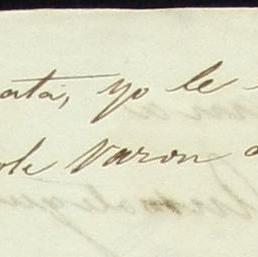 ata, yo le
ole Varon